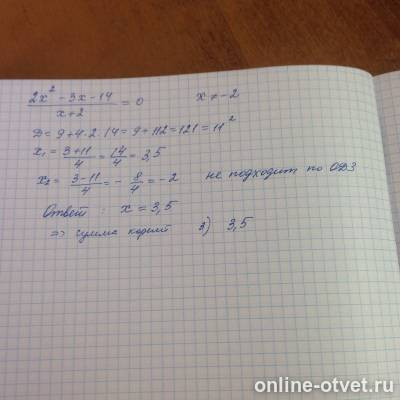 (2x² - 3x - 14)/(x+2) = 0    x ≠ -2
D = 9 + 4 · 2 · 14 = 9 + 112 = 121 = 11²
x₁ = (3+11)/4 = 14/4 = 3,5
x₂ = (3-11)/4 = - 8/4 = -2    не подходит по ОДЗ
Ответ : x = 3,5
=> сумма корней 3) 3,5
online-otvet.ru